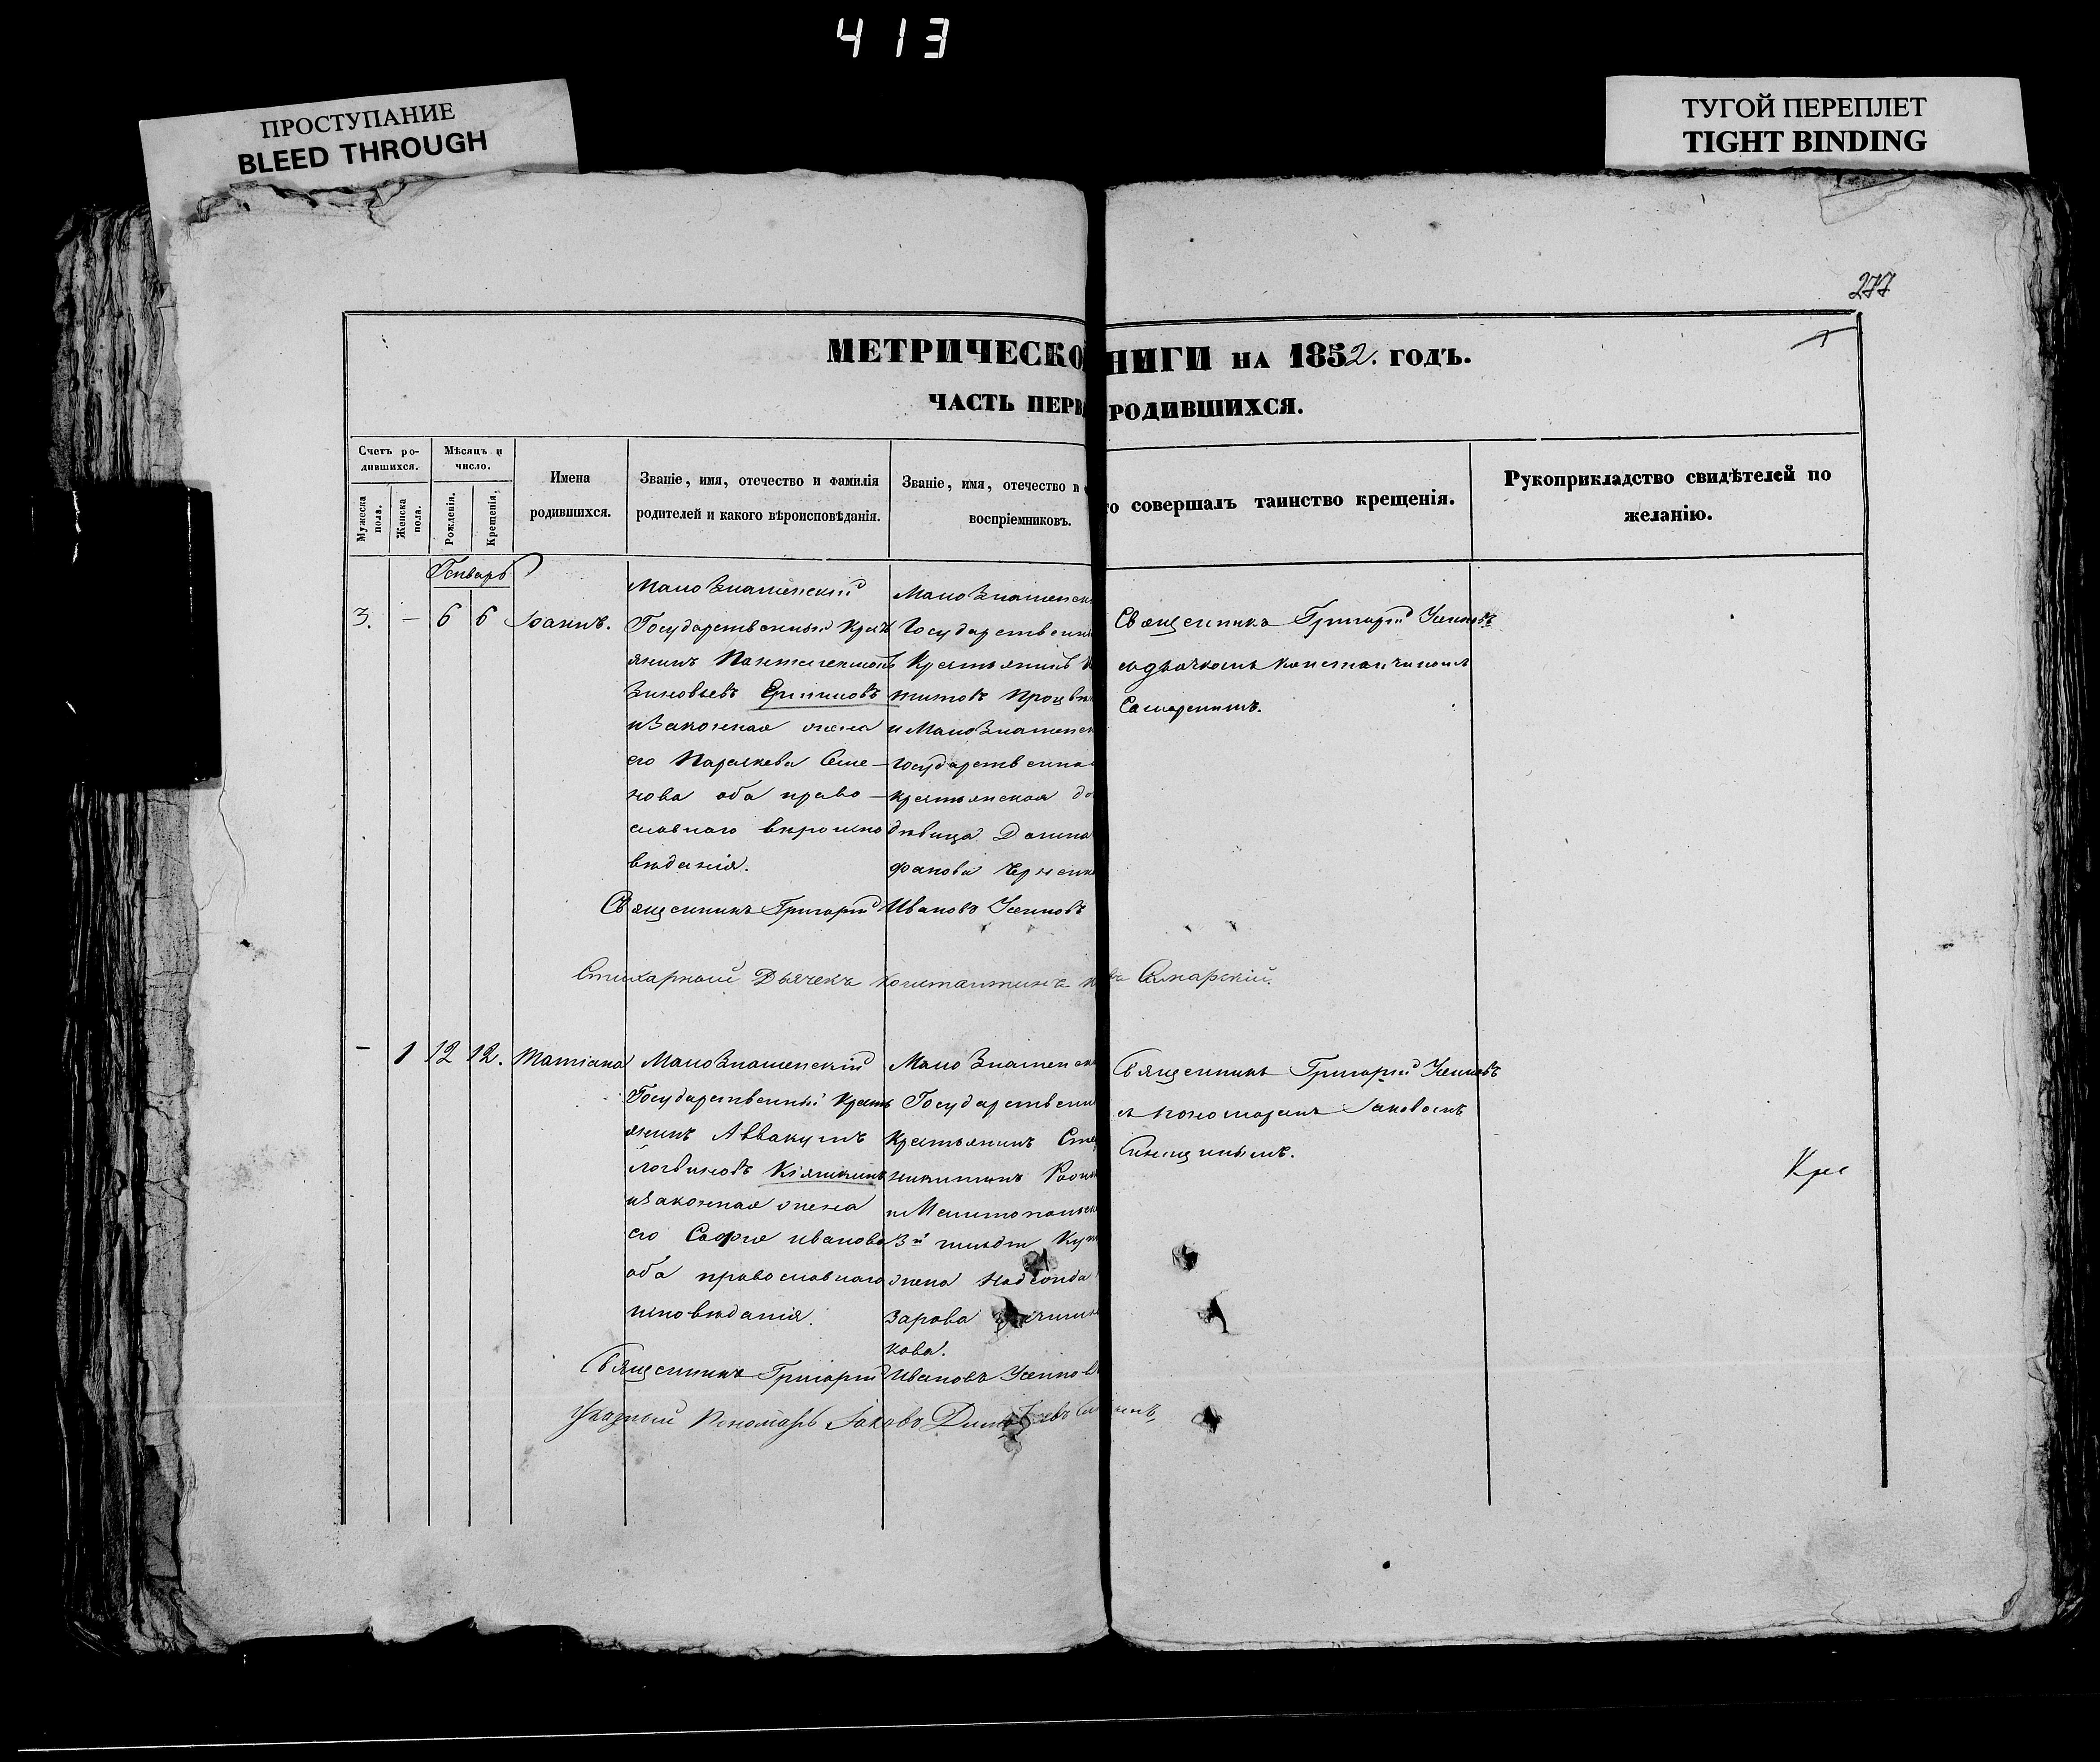 413
ПРОСТУПАНИЕ
BLEED THROUGH
ТУГОЙ ПЕРЕПЛЕТ
TIGHT BINDING
277
МЕТРИЧЕСКО НИГИ НА 1852. ГОДЪ.
ЧАСТЬ ПЕРВ РОДИВШИХСЯ.
Счетъ ро-
дившихся.
Мужеска пола.
Женска пола.
Мѣсяцъ и
число.
Рожденія.
Крещенія.
Имена
родившихся.
Званіе, имя, отечество и фамилія
родителей и какого вѣроисповѣданія.
Званіе, имя, отечество и
воспріемниковъ.
совершалъ таинство крещенія.
Рукоприкладство свидѣтелей по
желанію.
Генварь
3. – 6 6 Іоаннъ.
МалоЗнаменский
Государственный Крестъ
янинъ Пантелеимонъ
Зиновьевъ
иЗаконная жена
его Параскева Семе-
нова оба право-
славнаго вѣроиспо
вѣданія.
МалоЗнаменск
Государственн
Крестьянинъ
титовъ
и МалоЗнаменск
Государственна
крестьянская до
дѣвица Домна
фанова
Священникъ Григорій
съ дьячкомъ Константиномъ
Самарскимъ.
Священникъ Григорій Ивановъ
Стихарный Дьячекъ Константинъ Самарскій.
– 1 12 12. Татіана
МалоЗнаменскій
Государственный Крестъ
янинъ Аввакумъ
Логвиновъ Кіяшкинъ
иЗаконная жена
его Софія иванова
оба православнаго
исповѣданія.
МалоЗнаменск
Государственн
Крестьянинъ
никитинъ
и Мелитопольск
3й гильдіи Куп
жена Надежда
Зарова
кова.
Священникъ Григорій
съ пономаремъ Іаковомъ
Синицынымъ.
Крес
Священникъ Григорій Ивановъ
Указный Пономарь Іаковъ